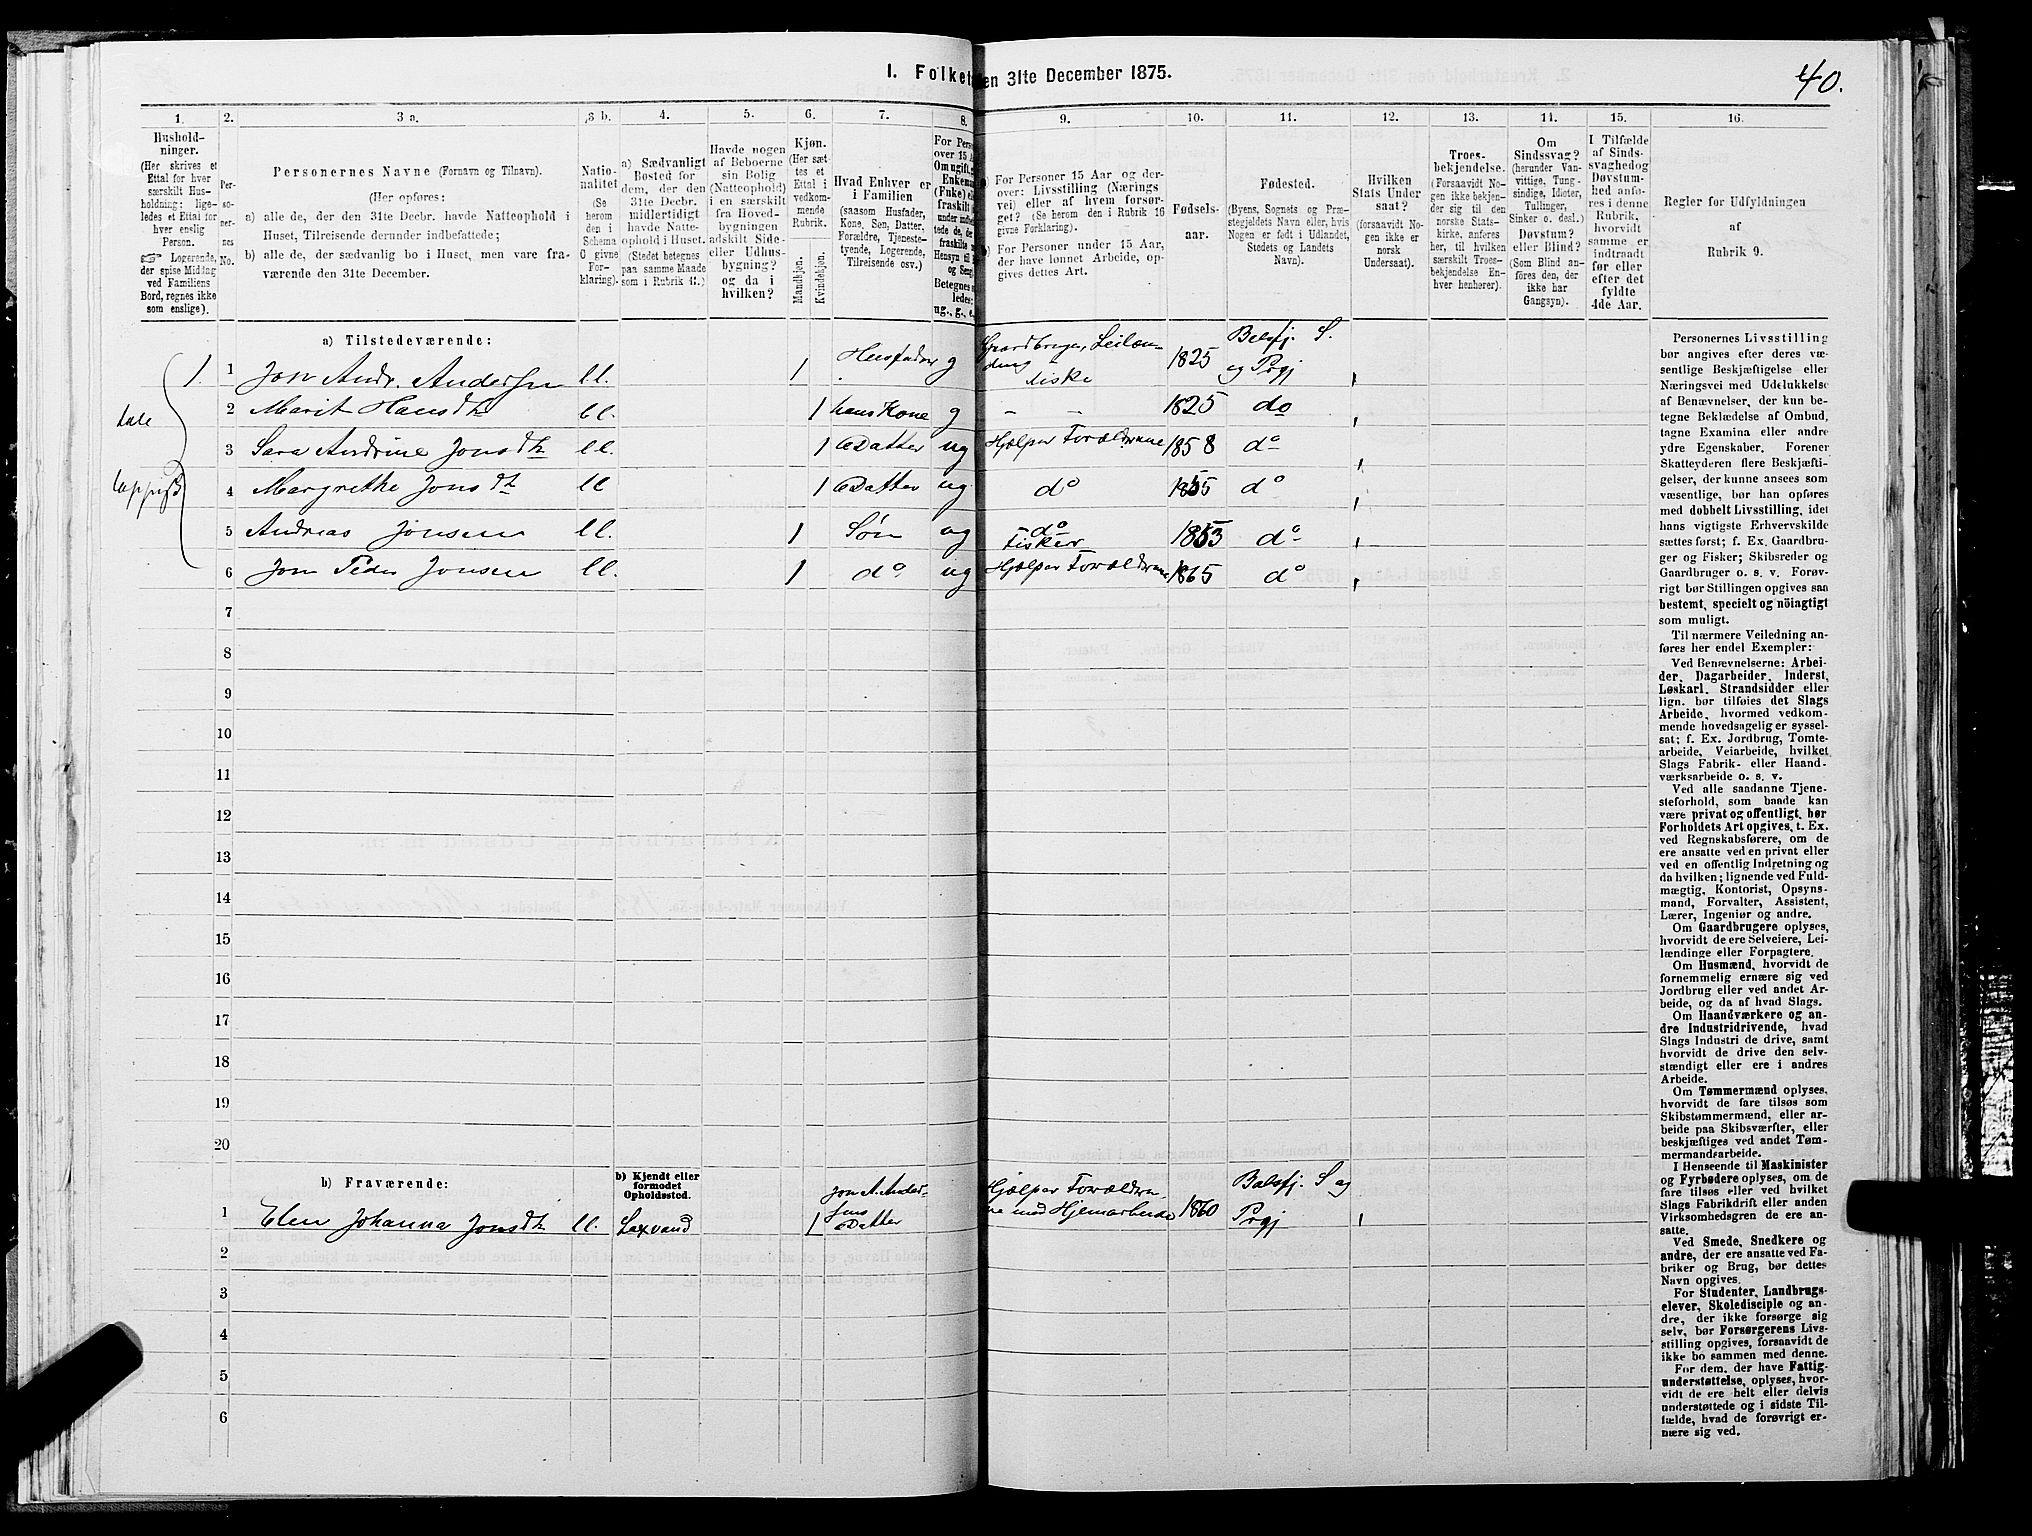 I. Folket
den 31te December 1875.
40.
1.
Hushold-
ninger.
(Her skrives et
Ettal for hver
særskilt Hus-
holdning; lige-
ledes et Ettal for
hver enslig
Person.
☞ Logerende,
der spise Middag
ved Familiens
Bord, regnes ikke
som enslige).
2.
Per-
so-
ner-
nes
No.
3 a.
Personernes Navne (Fornavn og Tilnavn).
(Her opføres:
a) alle de, der den 31te Decbr. havde Natteophold i
Huset, Tilreisende derunder indbefattede;
b) alle de, der sædvanlig bo i Huset, men vare fra-
værende den 31te December.
3 b.
Natio-
nalitet
(Se
herom
den i
Schema
O givne
For-
klaring).
4.
a) Sædvanligt
Bosted for
dem, der den
31te Decbr.
midlertidigt
havde Natte-
ophold i Huset.
(Stedet betegnes
paa samme Maade
som i Rubrik 11.)
5.
Havde nogen
af Beboerne
sin Bolig
(Natteophold)
i en særskilt
fra Hoved-
bygningen
adskilt Side-
eller Udhus-
bygning?
og da i
hvilken?
6.
Kjøn.
(Her sæt-
tes et
Ettal i
vedkom-
mende
Rubrik.
Mandkjøn.
Kvindekjøn.
7.
Hvad Enhver er
i Familien
(saasom Husfader,
Kone, Søn, Datter,
Forældre, Tjeneste-
tyende, Logerende,
Tilreisende osv.)
8.
For Pers
over 15 A
Om ugift,
Enkema
(Fnke) e
fraskilt
under indb
tede de,
fraskilte
Hensyn til
og Seng.
Betegnes s
ledes:
ug., g., e.
9.
a) For Personer 15 Aar og der-
over: Livsstilling (Nærings-
vei) eller af hvem forsør-
get? (Se herom den i Rubrik 16
givne Forklaring).
b) For Personer under 15 Aar,
der have lønnet Arbeide, op-
gives dettes Art.
10.
Fødsels-
aar.
11.
Fødested.
(Byens, Sognets og Præ-
stegjeldets Navn eller, hvis
Nogen er født i Udlandet,
Stedets og Landets
Navn).
12.
Hvilken
Stats Under-
saat?
(forsaavidt No-
gen ikke er
norsk
Undersaat).
13.
Troes-
bekjendelse.
(Forsaavidt No-
gen ikke bekjen-
der sig til den
norske Stats-
kirke, anføres
her, til hvilken
særskilt Troes-
bekjendelse En-
hver henhører).
11.
Om
Sindssvag?
(herunder Van-
vittige, Tung-
sindige, Idioter,
Tullinger,
Sinker o. desl.)
Døvstum?
eller Blind?
(Som Blind an-
føres den, der
ikke har
Gangsyn).
15.
I Tilfælde
af Sinds-
svaghed og
Døvstum-
hed anfø-
res i denne
Rubrik,
hvorvidt
samme er
indtraadt
før eller
efter det
fyldte
4de Aar.
16.
Regler for Udfyldningen
af
Rubrik 9.
a) Tilstedeværende:
1. 1 Jon Andr. Andersen ll. 1 Husfader g Gaardbruger, Leilæn-
ding
Fiske 1825 Balsfj. S.
og Prgj
2 Marit Hansdtr ll. 1 hans Kone g – – 1825 do
tale
3 Sara Andrine Jonsdtr ll. 1 Datter ug Hjælper Forældrene 1858 do
lappisk
4 Margrethe Jonsdtr ll 1 Datter ug. do 1855 do
5 Andreas Jonsen ll. 1 Søn ug do
Fisker 1853 do
6 Jon Peder Jonsen ll. 1 do ug Hjælper Forældrene 1865 do
7
8
9
10
11
12
13
14
15
16
17
18
19
20
b) Fraværende:
b) Kjendt eller
formodet
Opholdssted.
1 Elen Johanna Jonsdtr ll. Laxvand 1 Jon A. Ander-
sens
Datter Hjælper Forældre-
ne med Hjemarbeide 1860 Balsfj. S og
Prgj
2
3
4
5
6
Personernes Livsstilling
bør angives efter deres væ-
sentlige Beskjæftigelse eller
Næringsvei med Udelukkelse
af Benævnelser, der kun be-
tegne Beklædelse af Ombud,
tagne Examina eller andre
ydre Egenskaber. Forener
Skatteyderen flere Beskjæfti-
gelser, der kunne ansees som
væsentlige, bør han opføres
med dobbelt Livsstilling, idet
hans vigtigste Erhvervskilde
sættes først; f. Ex. Gaardbru-
ger og Fisker; Skibsreder og
Gaardbruger o. s. v. Forøv-
rigt bør Stillingen opgives saa
bestemt, specielt og nöiagtigt
som muligt.
Til nærmere Veiledning an-
føres her endel Exempler:
Ved Benævnelserne: Arbei-
der, Dagarbeider, Inderst,
Løskarl, Strandsidder eller
lign. bør tilføies det Slags
Arbeide, hvormed vedkom-
mende hovedsagelig er syssel-
sat; f. Ex. Jordbrug, Tomte-
arbeide, Veiarbeide, hvilket
Slags Fabrik- eller Haand-
værksarbeide o. s. v.
Ved alle saadanne Tjene-
steforhold, som baade kan
være privat og offentligt, bør
Forholdets Art opgives, t. Ex.
ved Regnskabsførere, om de
ere ansatte ved en privat eller
ved en offentlig Indretning og
da hvilken; lignende ved Fuld-
mægtig, Kontorist, Opsyns-
mand, Forvalter, Assistent,
Lærer, Ingeniør og andre.
Om Gaardbrugere oplyses,
hvorvidt de ere Selveiere, Lei-
lændinge eller Forpagtere.
Om Husmænd, hvorvidt de
fornemmelig ernære sig ved
Jordbrug eller ved andet Ar-
beide, og da af hvad Slags.
Om Haandværkere og an-
dre Industridrivende, hvad
Slags Industri de drive, samt
hvorvidt de drive den selv-
stændigt eller ere i andres
Arbeide.
Om Tømmermænd oplyses,
hvorvidt de fare tilsøs som
Skibstømmermænd, eller ar-
beide paa Skibsværfter, eller
beskjæftiges ved andet Tøm-
mermandsarbeide.
I Henseende til Maskinister
og Fyrbødere oplyses, om de
fare tilsøs eller ved hvilket
Slags Fabrikdrift eller anden
Virksomhedsgren de ere an-
satte.
Ved Smede, Snedkere og
andre, der ere ansatte ved Fa-
briker og Brug, bør dettes
Navn opgives.
For Studenter, Landbrugs-
elever, Skoledisciple og an-
dre, der ikke forsørge sig
selv, bør Forsørgerens Livs-
stilling opgives, forsaavidt de
ikke bo sammen med denne.
For dem, der have Fattig-
understøttelse, oplyses, hvor-
vidt de ere helt eller delvis
understøttede og i sidste Til-
fælde, hvad de forøvrigt er-
nære sig ved.